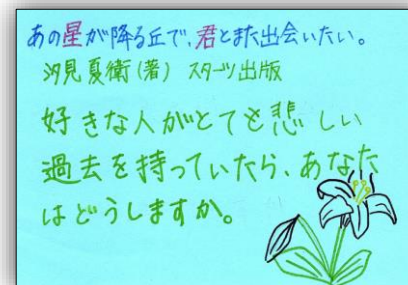 あの星が降る丘で、君とまた出会いたい。
汐見夏衛(著) スターツ出版
好きな人がとても悲しい
過去を持っていたら、あなた
はどうしますか。